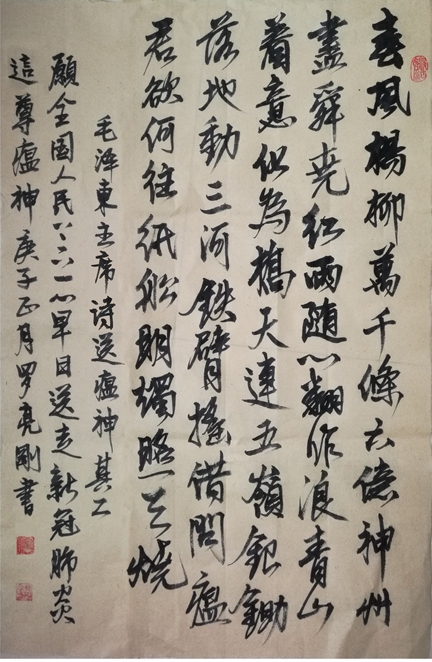 春風楊柳萬千條六億神州
盡舜尧红雨随心翻作浪青山
着意化為橋天連五嶺銀鋤
落地動三河鉄臂搖借問瘟
君欲何往纸船明燭照天燒
毛泽東主席詩送瘟神其二
願全国人民万众一心早日送走新冠肺炎
這尊瘟神庚子正月罗亮剛書